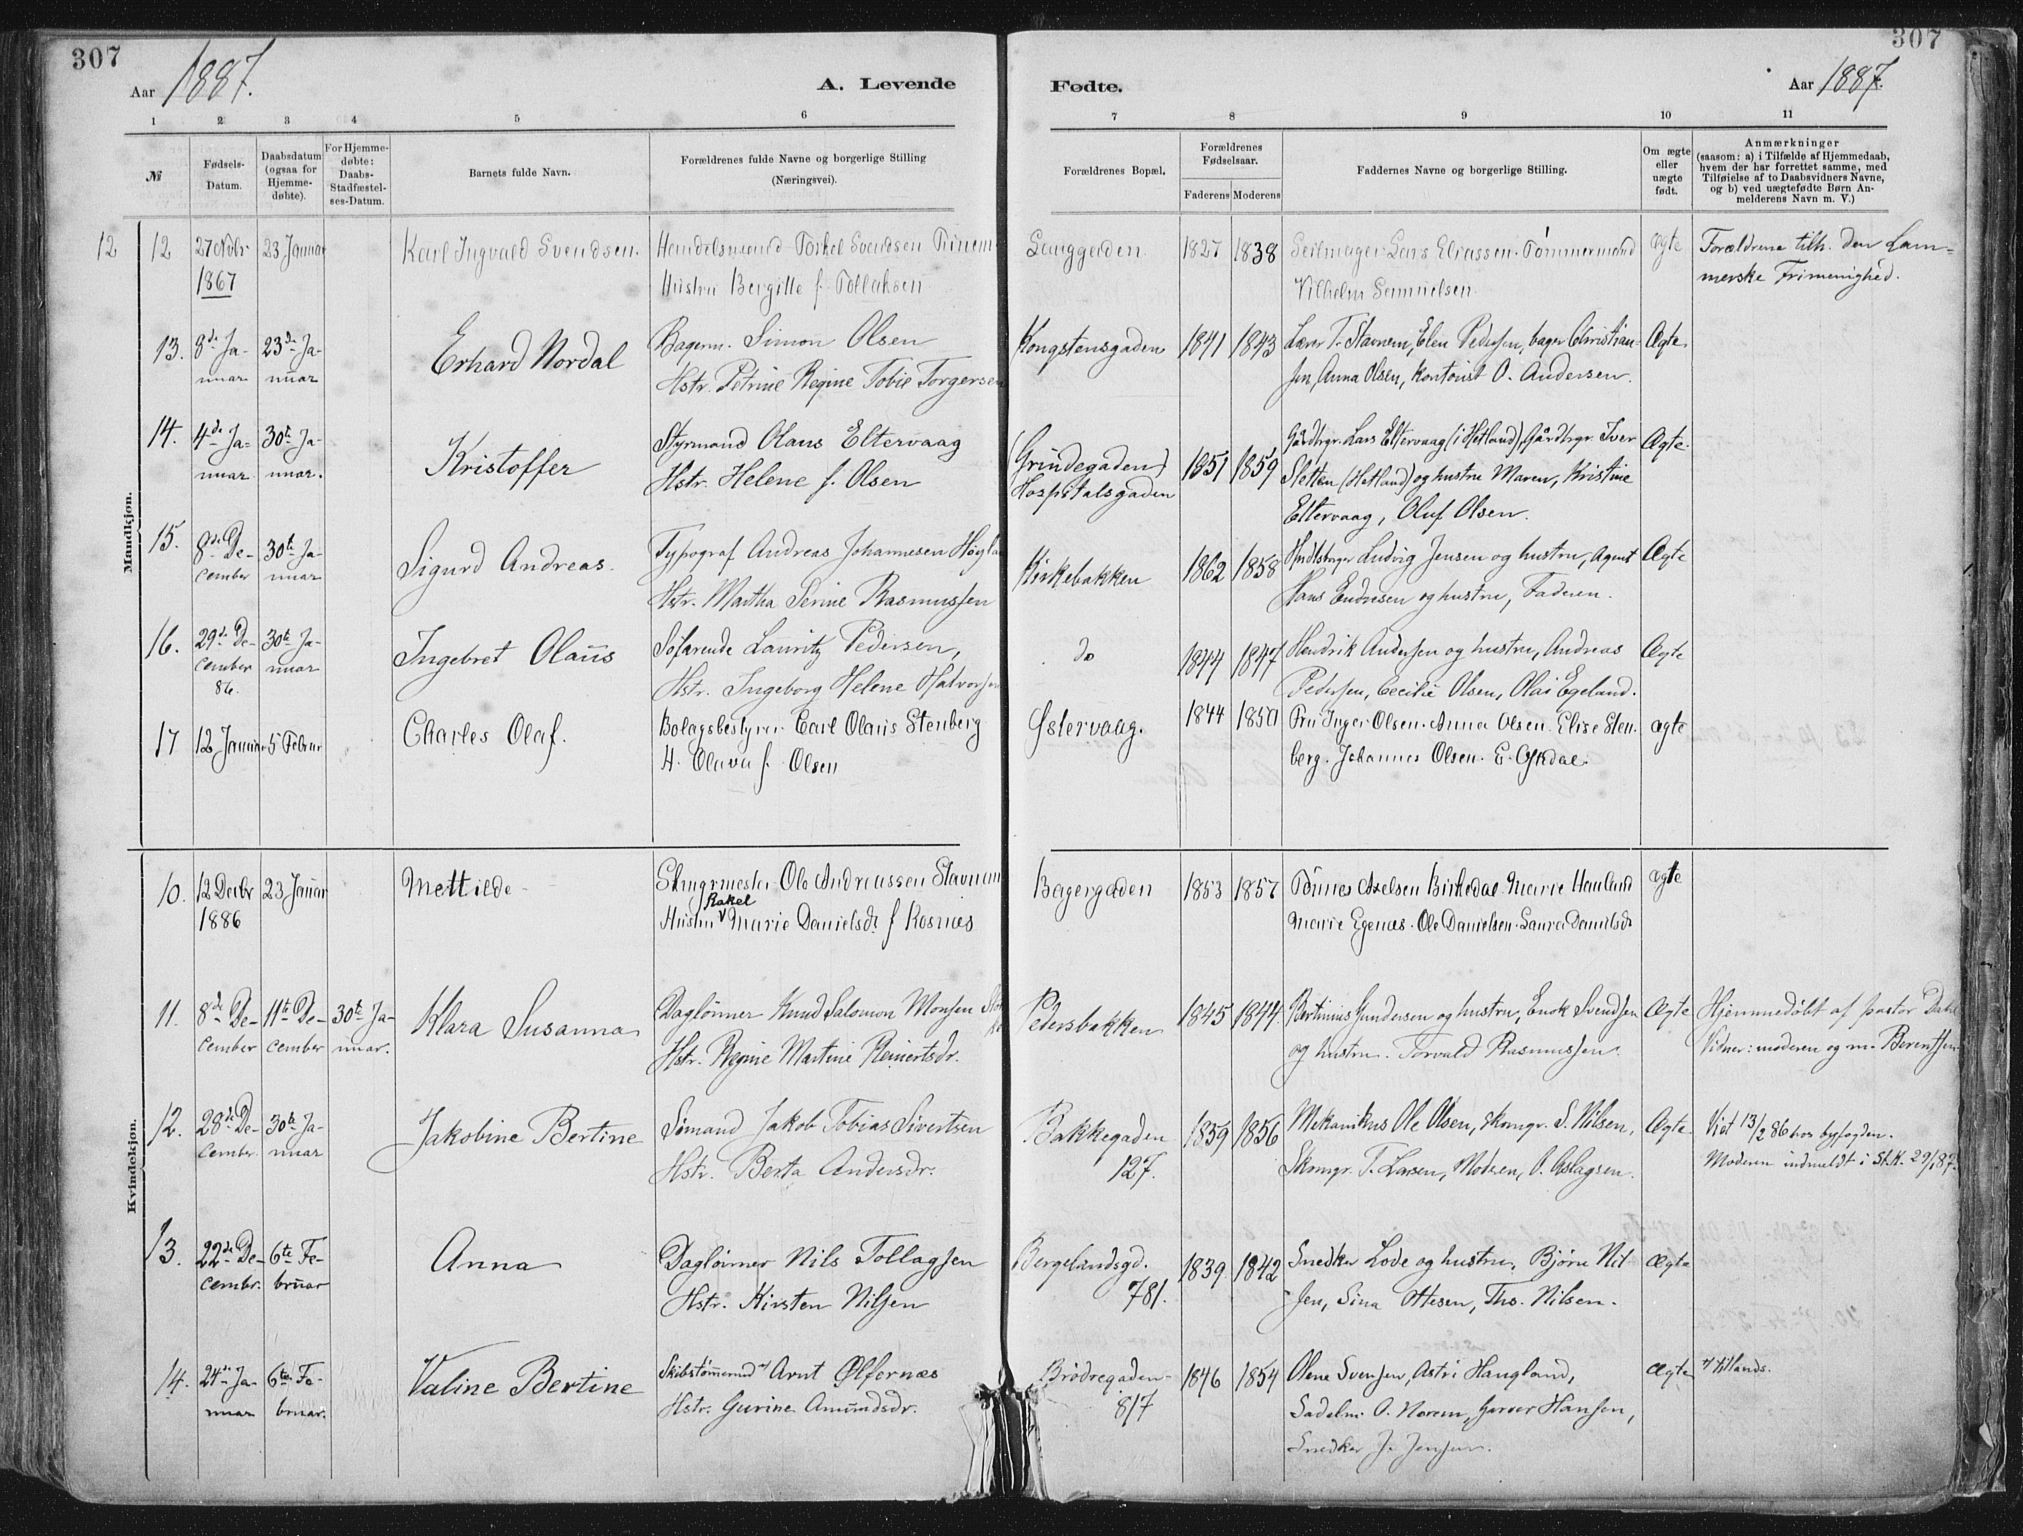 307
307
Aar 1887.
A. Levende
Fødte.
Aar 1887.
1 2 3 4 5 6 7 8 9 10 11
№
Fødsels-
Datum.
Daabsdatum
(ogsaa for
Hjemme-
døbte).
For Hjemme-
døbte:
Daabs-
Stadfæstel-
ses-Datum.
Barnets fulde Navn.
Forældrenes fulde Navne og borgerlige Stilling
(Næringsvei).
Forældrenes Bopæl.
Forældrenes
Fødselsaar.
Faderens Moderens
Faddernes Navne og borgerlige Stilling.
Om ægte
eller
uægte
født.
Anmærkninger
(saasom: a) i Tilfælde af Hjemmedaab,
hvem der har forrettet samme, med
Tilføielse af to Daabsvidners Navne,
og b) ved uægtefødte Børn An-
melderens Navn m. V.)
Mandkjøn.
12 12 27 Novbr 23 Januar Karl Ingvald Svendsen. Handelsmand Torkel Svendsen Langgaden 1827 1838 Seilmager Lars Eliassen. Tømmermand ægte Forældrene tilh. den Lam-
1867 Hustru Bergitte f. Tollaksen Vilhelm Samuelsen merske Frimenighed.
13. 8de Ja- 23de Ja- Erhard Nordal Bagerm. Simon Olsen Kongstensgaden 1841 1843 Lærer T. Stavnem, Elen Pedersen, bager Christian- Ægte
nuar nuar Hstr. Petrine Regine Tobie Torgersen sen, Anna Olsen, kontorist O. Andersen.
14. 4de Ja- 30te Ja- Kristoffer Styrmand Olaus Eltervaag (Grindegaden) 1851 1859 Gårdbrgr. Lars Eltervaag (i Hetland), Gårdbrgr. Iver Ægte.
nuar nuar. Hstr. Helene f. Olsen Hospitalsgaden Sletten (Hetland) og hustru Maren, Kristine
Eltervaag, Oluf Olsen.
15. 8de De- 30te Ja- Sigurd Andreas. Typograf Andreas Johannesen Kirkebakken 1862 1858 Ludvig Jensen og hustru, Agent Ægte
cember nuar Hstr. Martha Serine Rasmussen Hans Endresen og hustru, Faderen.
16. 29de De- 30te Ja- Ingebret Olaus Søfarende Lauritz Pedersen, do 1844 1847 Hendrik Andersen og hustru, Andreas Ægte
cember nuar Hstr. Ingeborg Helene Halvorsen Pedersen, Cecilie Olsen, Olai Egeland.
86.
17 12 Januar 5 Februar Charles Olaf. Bolagsbestyrer Carl Olaus Stenberg Østervaag. 1844 1850 Fru Inger Olsen. Anna Olsen. Elise Sten- ægte
H. Olava f. Olsen berg. Johannes Olsen. E.
Kvindekjøn.
10. 12 Decbr 23 Januar Mettilde Ole Andreassen Stavnem Bagergaden 1853 1857 Tønnes Axelsen Birkedal. Marie Hauland ægte
1886 Hustru Rakel Marie Danielsdr f Rosnes Marie Egenæs. Ole Danielsen. Laura Danielsdr
11. 8de De- 11te De- 30te Ja- Klara Susanna Daglønner Knud Salomon Monsen Pedersbakken 1845 1844 Bertinius Gundersen og hustru, Enok Svendsen Ægte Hjemmedøbt af pastor Dahl
cember cember nuar. Hstr. Regine Martine Reinertsdr. og hustru. Torvald Rasmussen. Vidner: moderen og m. Berentsen
12. 28de De- 30te Ja- Jakobine Bertine Sømand Jakob Tobias Sivertsen Bakkegaden 1859 1856 Mekanikus Ole Olsen, skomgr. S. Nilsen, Ægte Viet 13/2 86 hos byfogden.
cember. nuar Hstr. Berta Andersdr. 127. Skomgr. T. Larsen, Madsen, O. Aslagsen. Moderen indmeldt i St.K. 29/1 87.
13. 22de De- 6te Fe- Anna Daglønner Nils Tollagsen Bergelandsgd. 1839 1842 Snedker Lode og hustru, Bjørn Nil- Ægte
cembr. bruar Hstr. Kirsten Nilsen 781. sen, Sina Ottesen, Ths. Nilsen.
14. 24de Ja- 6te Fe- Valine Bertine Skibstømmermd Arnt Ølfernæs Brødregaden 1846 1854 Olene Svensen, Astri Haugland, Ægte tillands.
nuar bruar. Hstr. Gurine Amundsdr. 817 Sadelm. O. Norem, Garver Hansen,
Snedker J. Jensen.